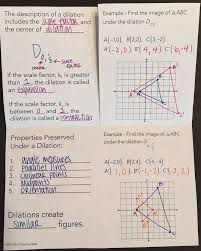 The description of a dilation
includes the scale factor and
the center of dilation.
D O, 3
center
scale factor
If the scale factor, k, is greater
than 1, the dilation is called
an expansion.
If the scale factor, k, is
between 0 and 1, the
dilation is called a contraction
Example - Find the image of △ABC
under the dilation D
A(-1,0) B(2,2) C(3,-2)
A'(-2,0) B'(4,4) C'(6,-4)
Properties Preserved
Under a Dilation:
1. angle measures
2. parallel lines
3. collinear points
4. midpoints
5. orientation
Dilations create
similar figures.
Example - Find the image of △ABC
under the dilation D
A(-2,0) B(2,4) C(4,-4)